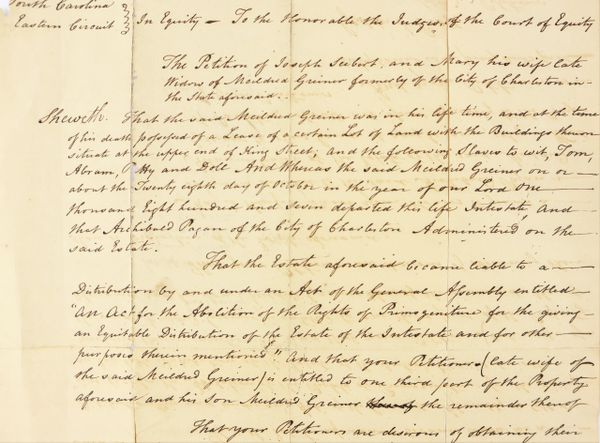 South Carolina
Eastern Circuit
In Equity — To the Honorable the Judges of the Court of Equity
The Petition of Joseph Seebert, and Mary his wife late
Widow of Meildred Greiner formerly of the City of Charleston in
the State aforesaid.
Sheweth. That the said Meildred Greiner was in his life time, and at the time
of his death possessed of a Lease of a certain Lot of Land with the Buildings thereon
situate at the upper end of King Street, and the following Slaves to wit, Tom,
Abram, Patty and Doll And Whereas the said Meildred Greiner on or
about the Twenty eighth day of October in the year of our Lord One
thousand Eight hundred and Seven departed this life Intestate, and
that Archibald Pagan of the City of Charleston Administered on the
said Estate.
That the Estate aforesaid became liable to a
Distribution by and under an Act of the General Assembly entitled
"An Act for the Abolition of the Rights of Primogeniture for the giving
an Equitable Distribution of the Estate of the Intestate and for other
purposes therein mentioned" And that your Petitioners (late wife of
the said Meildred Greiner) is entitled to one third part of the Property
aforesaid and his Son Meildred Greiner the remainder thereof
That your Petitioners are desirous of obtaining their